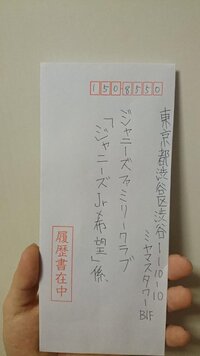 1508550
東京都渋谷区渋谷1-10-10
ミヤマスタワーB1F
ジャニーズファミリークラブ
「ジャニーズJr.希望」係
履歴書在中